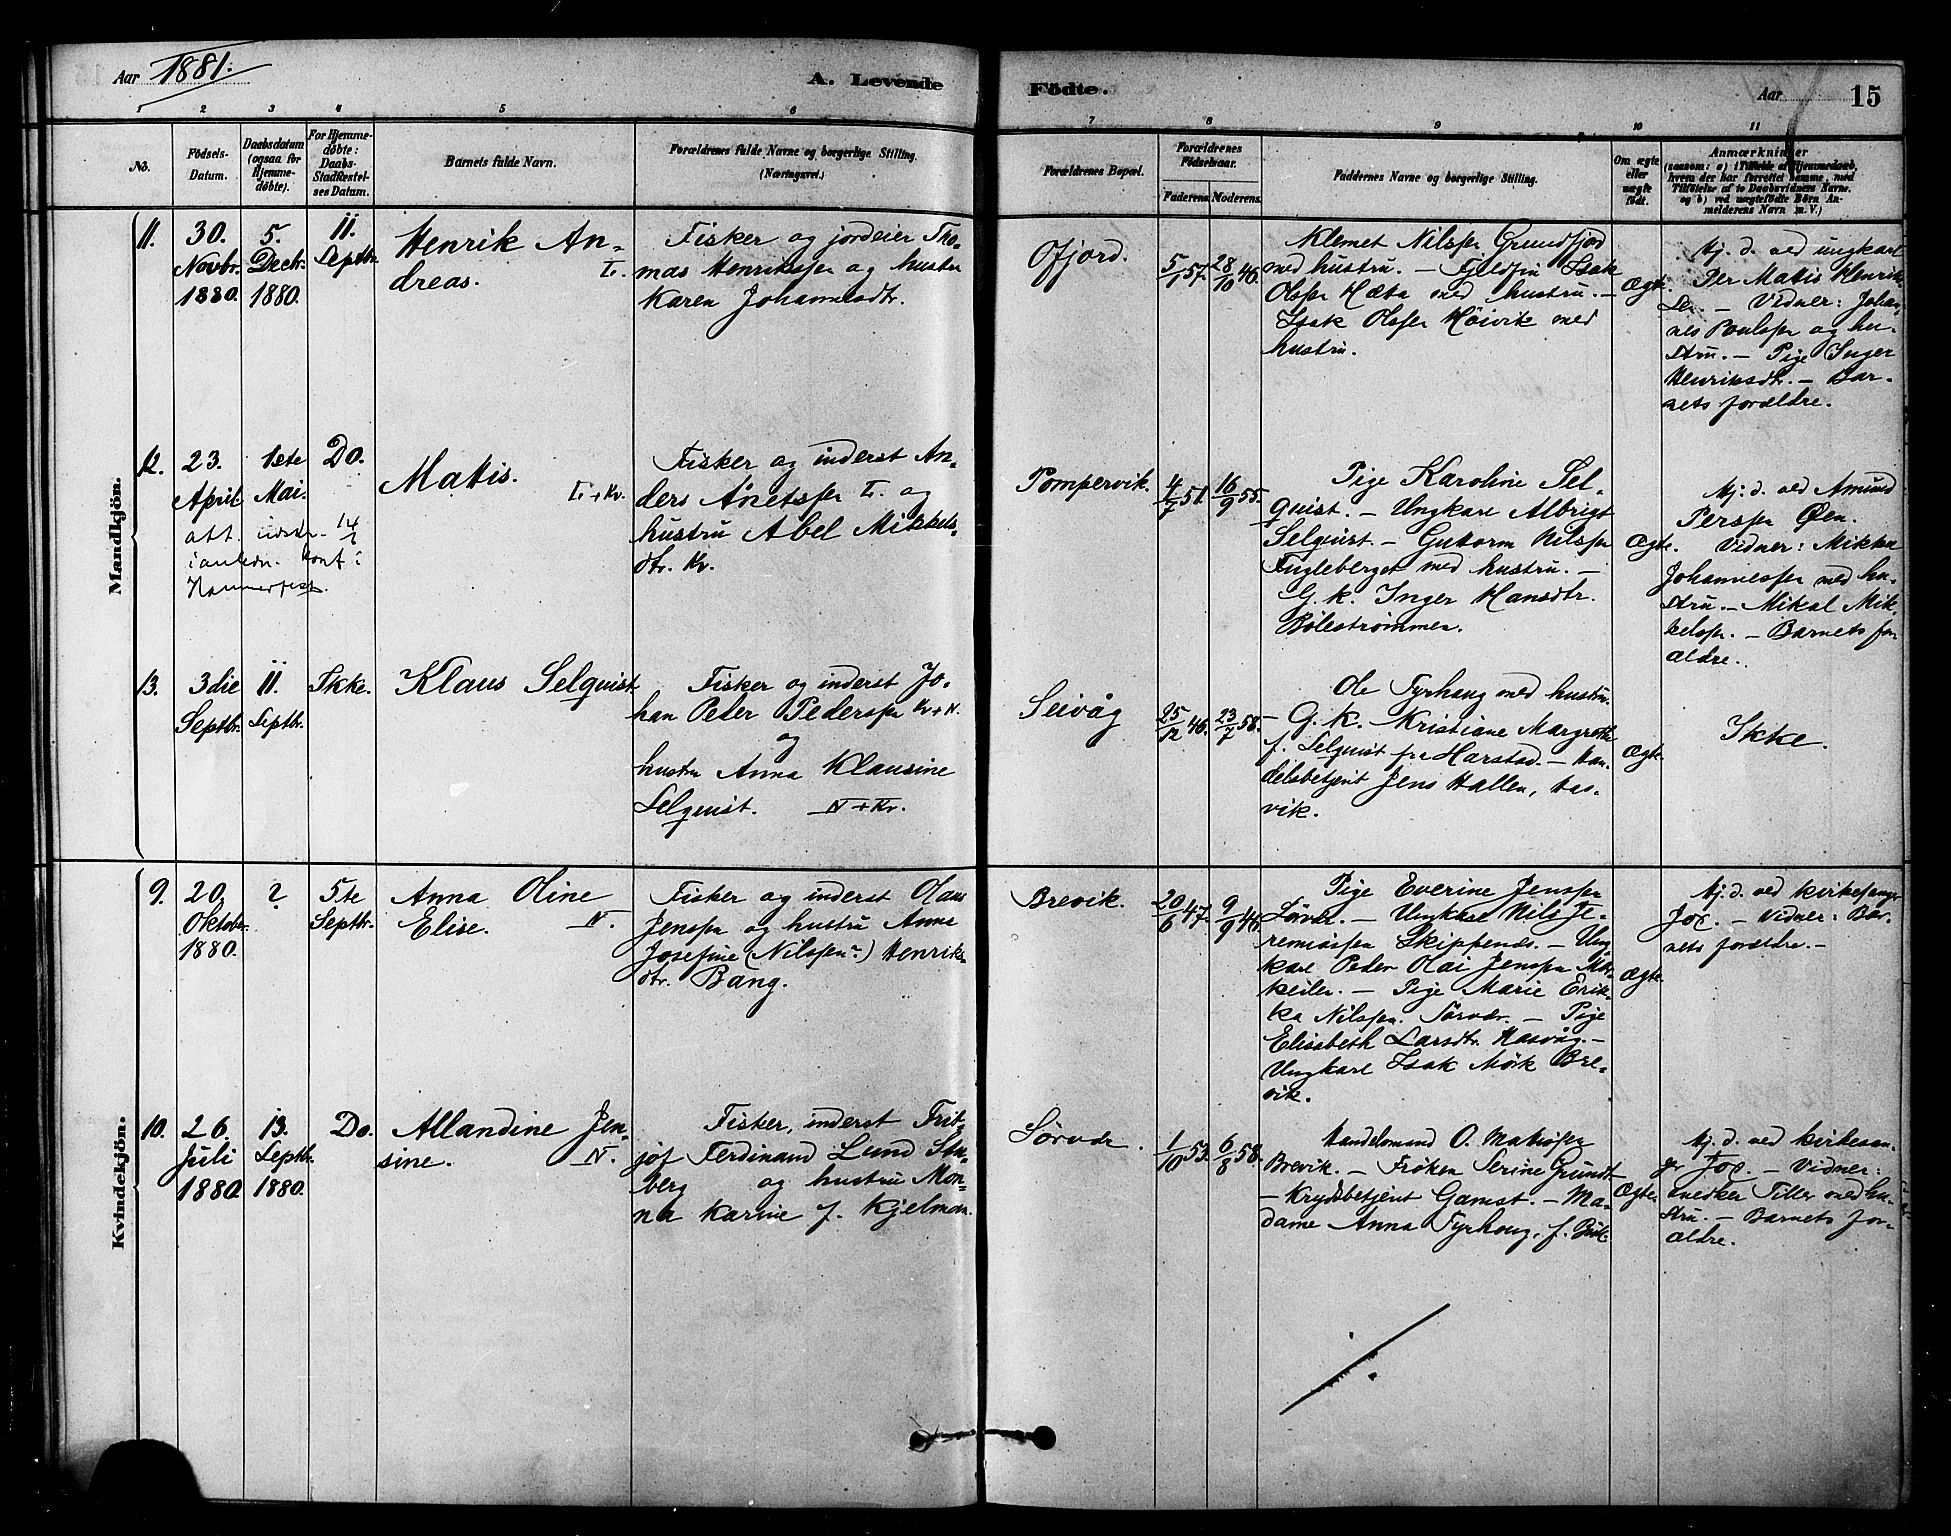 Aar 1881. A. Levende Födte. Aar 15
1 2 3 4 5 6 7 8 9 10 11
No. Födsels-Datum. Daabsdatum (ogsaa for Hjemmedöbte). For Hjemmedöbte: Daabs-Stadfæstelses Datum. Barnets fulde Navn. Forældrenes fulde Navne og borgerlige Stilling. (Næringsvei.) Forældrenes Bopæl. Forældrenes Födselsaar. Faderens. Moderens. Faddernes Navne og borgerlige Stilling. Om ægte eller uægte födt. Anmærkninger (saasom: a) i Tilfælde af Hjemmedaab, hvem der har forrettet samme, med Tilföielse af to Daabsvidners Navne, og b) ved uægtefödte Börn Anmelderens Navn m. V.)
Mandkjön.
11. 30. Novbr. 1880. 5. Decbr. 1880. 11. Septbr.
Henrik An-
dreas. L.
Fisker og jordeier Tho-
mas Henrikssen og hustru
Karen Johannesdtr.
Ofjord. 5/7 57. 28/10 46.
Klemet Nilssen Grundfjord
med hustru. – Fjeldfin Isak
Olssen Hætta med hustru. –
Isak Olssen Höivik med
hustru.
Ægte.
Hj. d. ved ungkarl
Per Mattis Henrik-
sen. – Vidner: Johan-
nes Poulssen og hu-
stru. – Pige Inger
Henriksdtr. – Bar-
nets forældre.
12. 23. April. 1ste Mai. Do.
Mattis. L + Kv.
Fisker og inderst An-
ders Ånetssen L. og
hustru Abel Mikkels-
dtr. Kv.
Pompervik. 4/7 51. 16/9 55.
Pige Karoline Sel-
quist. – Ungkarl Albrigt
Selquist. – Guttorm Nilssen
Fugleberget med hustru. –
G. k. Inger Hansdtr.
Bölestrømmen.
Ægte.
Hj. d. ved Amund
Perssen Øen.
Vidner: Mikkel
Johannessen med hu-
stru. – Mikal Mik-
kelssen. – Barnets for-
ældre.
13. 3die Septbr. 11. Septbr. Ikke.
Klaus Selquist
Fisker og inderst Jo-
han Peder Pederssen Kv + N.
og
hustru Anna Klausine
Selquist. N + Kv.
Seivåg 25/12 46. 23/7 58.
Ole Fyrhaug med hustru.
– G. k. Kristiane Margrethe
f. Selquist fra Harstad. – Han-
delsbetjent Jens Hallen, Has-
vik.
Ægte
Ikke.
Kvindekjön.
9. 20. Oktober 1880. ? 5te Septbr.
Anna Oline
Elise. N.
Fisker og inderst Olaus
Jenssen og hustru Anne
Josefine (Nilssen?) Henriks-
dtr. Bang.
Brevik. 20/6 47. 9/9 46.
Pige Everine Jenssen
Sørvær. – Ungkarl Nils Je-
remiassen Skippernes. – Ung
karl Peder Olai Jenssen
– Pige Marie Erik-
ka Nilssen. Sørvær. – Pige
Elisabeth Larsdtr. Hasvåg. –
Ungkarl Isak Mörk Bre-
vik.
Ægte
Hj. d. ved kirkesanger
– Vidner: Bar-
nets forældre. –
10. 26. Juli 1880. 13. Septbr. 1880. Do.
Allandine Jen-
sine. N.
Fisker, inderst Frit-
jof Ferdinand Lund Sten-
berg og hustru Mon-
na Karine f. Kjelman.
Sørvær 1/10 53. 6/8 58.
Handelsmand O. Mathisen
Brevik. – Frøken Serine Grundt
– Krydsbetjent Gamst. – Ma-
dame Anna Fyrhoug, f.
Ægte
Hj. d. ved kirkesan-
ger – Vidner:
snedker Tiller med hu-
stru. – Barnets for-
ældre.